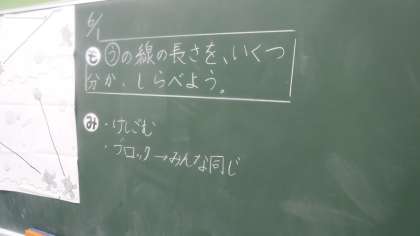 6/1
も ㋒の線の長さを、いくつ
分か、しらべよう。
み ・けしごむ
・ブロック→みんな同じ